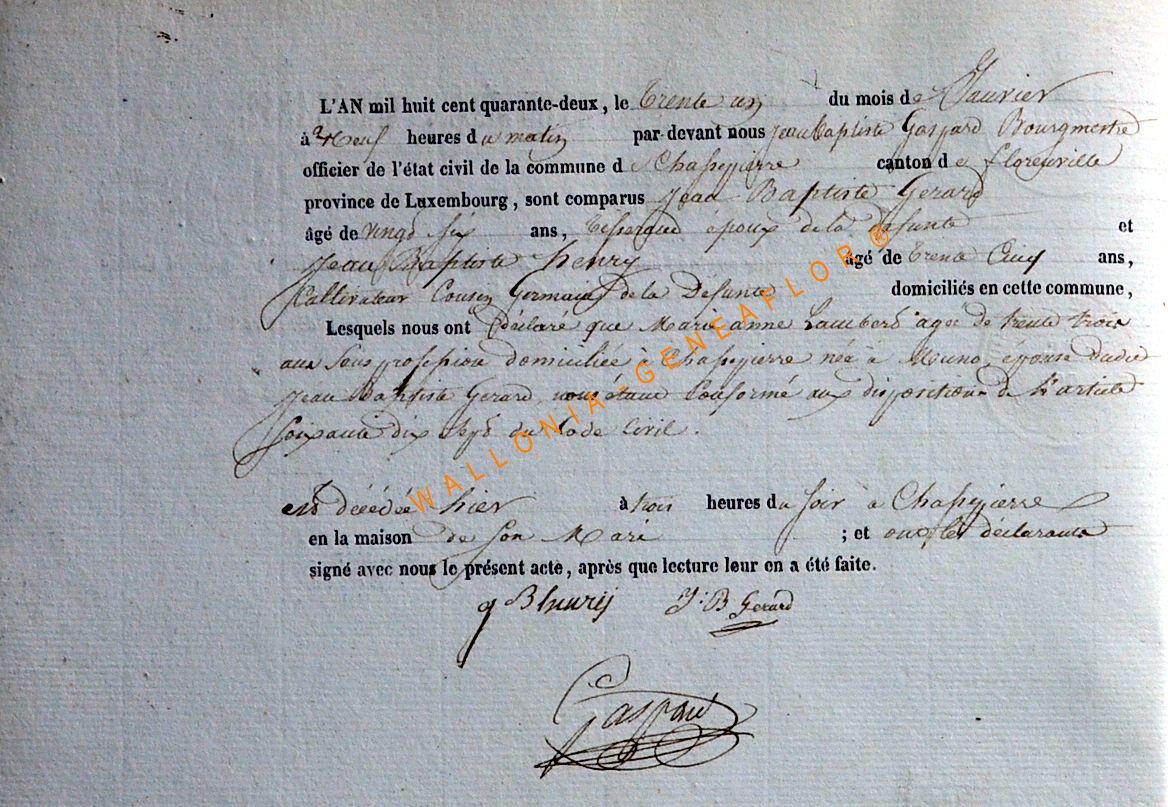 L'AN mil huit cent quarante-deux, le trente un du mois de Janvier
à neuf heures du matin par-devant nous Jean Baptiste Gaspard Bourgmestre
officier de l'état civil de la commune de Chassepierre canton de florenville
province de Luxembourg, sont comparus Jean Baptiste Gerard
âgé de vingt six ans, Tisserand époux de la défunte et
Jean Baptiste henry âgé de trente Cinq ans,
Cultivateur Cousin Germain de la Defunte domiciliés en cette commune,
Lesquels nous ont déclaré que Marie anne Lambert agée de trente trois
ans Sans profession domiciliée à Chassepierre née à Muno, épouse dudit
Jean Baptiste Gerard, nous étant Conformé aux dispositions de l'article
soixante dix Sept du Code Civil.
est décédée hier à trois heures du soir à Chassepierre
en la maison de son Mari ; et ont les déclarants
signé avec nous le présent acte, après que lecture leur en a été faite.
J B henrij J. B Gerard
Gaspard
WALLONIA-GENEAFLOR®